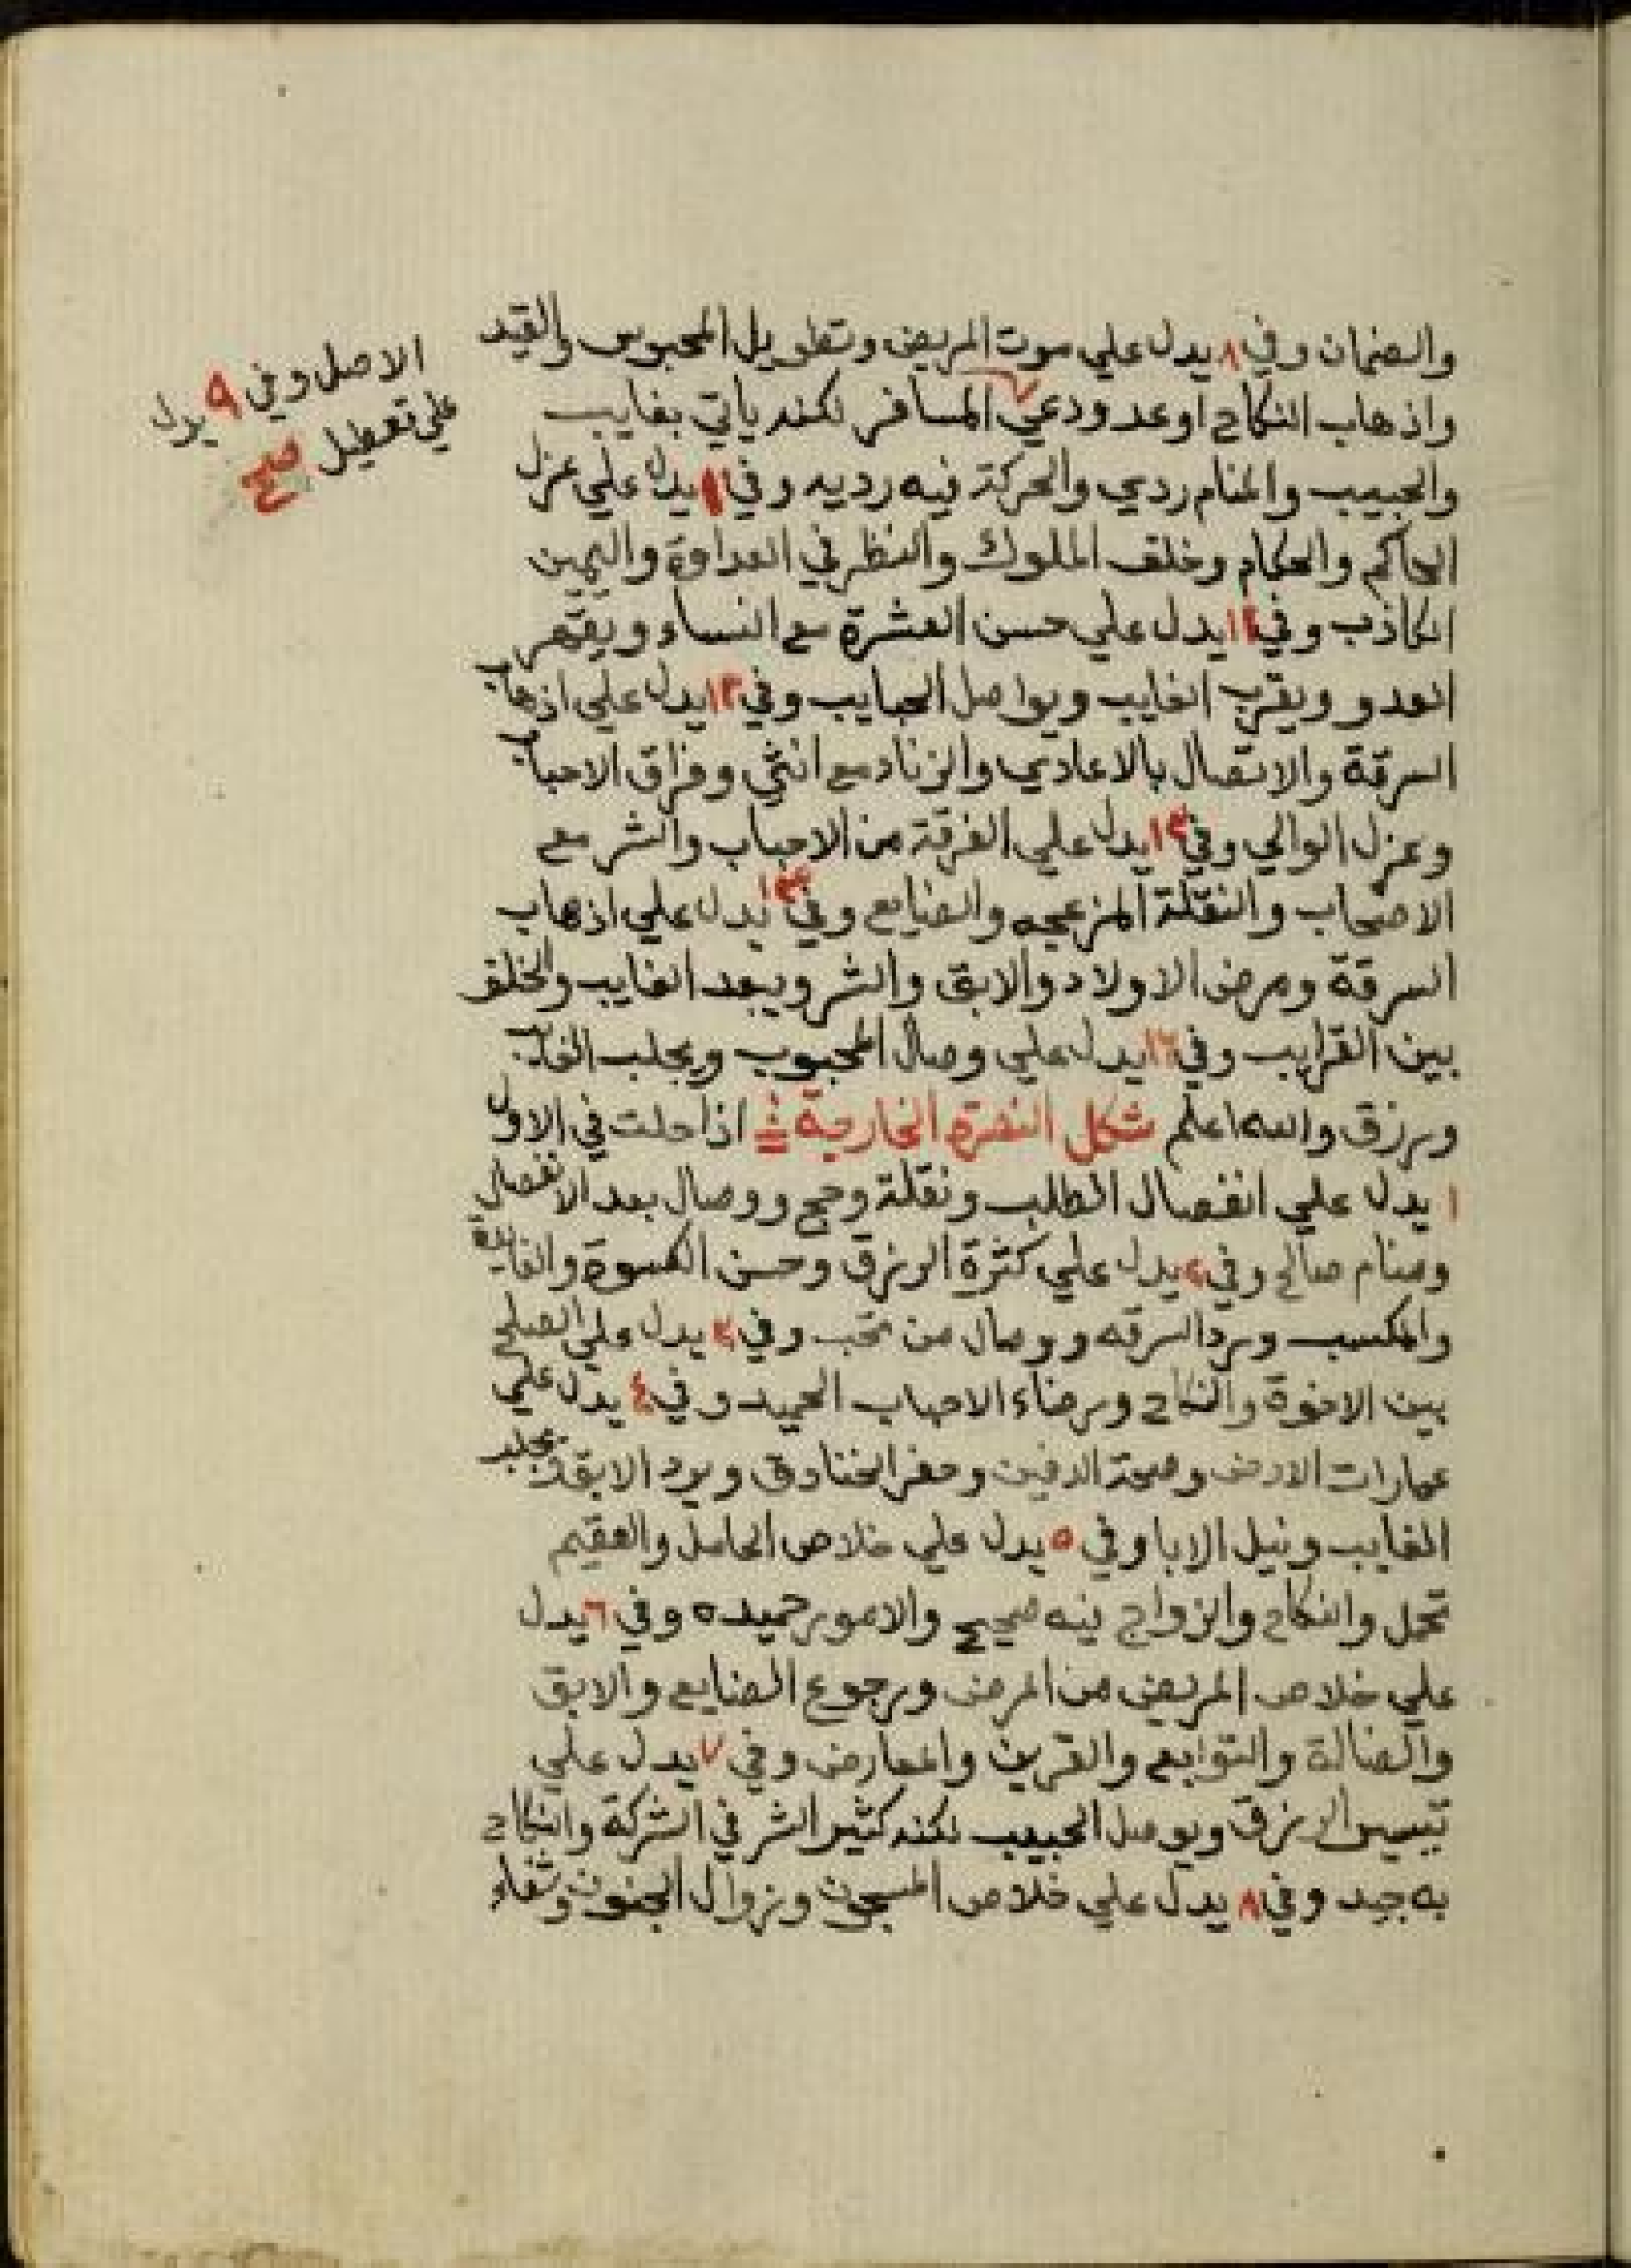 والضمان وفي ٨ يدل علي موت المريض وتطويل المحبوس والقيد
واذهاب النكاح اوعد ودعي المسافر لكنه ياتي بغايب
والحبيب والمنام ردي والحركة فيه رديه وفي يدل علي عزل
الحاكم والحكام وخلف الملوك والنظر في العداوة واليمين
الكاذب وفي ١١ يدل علي حسن العشرة مع النساء ويقهر
العدو ويقرب الغايب ويواصل الحبايب وفي ١٢ يدل علي اذهاب
السرقة والاتصال بالاعادي والزناد مع انثي وفراق الاحباب
وعزل الوالي وفي ١٣ يدل علي الفرقة من الاحباب والشر مع
الاصحاب والنقلة المزعجه والضايع وفي يدل علي اذهاب
السرقة ومرض الاولاد والابق والشر ويبعد الغايب والخلف
بين القرايب وفي ١٦ يدل علي وصال المحبوب ويجلب الغايب
ويرزق والله اعلم شكل النصره الخارجة اذا حلت في الاول
١ يدل علي انفصال الطلب ونقلة وحج ووصال بعد الانفصال
ومنام صالح وفي ٢ يدل علي كثرة الرزق وحسن الكسوة والفايده
والمكسب ويرد السرقه ووصال من تحب وفي ٣ يدل علي الصلح
بين الاخوة والنكاح ورضاء الاحباب الحميد وفي ٤ يدل علي
عمارات الارض وصحة الدفين وحفر الخنادق ويرد الابق يجلب
الغايب ونيل الابا وفي ٥ يدل علي خلاص الحامل والعقيم
تحمل والنكاح والزواج فيه صحيح والامور حميده وفي ٦ يدل
علي خلاص المريض من المرض ورجوع الضايع والابق
والضالة والتوابع والقرين والمعارض وفي ٧ يدل علي
تيسير الرزق ويوصل الحبيب لكنه كثير الشر في الشركة والنكاح
به جيد وفي ٨ يدل علي خلاص المسجون وزوال الجنون وشفاء
الاصل وفي ٩ يدل
علي تعطيل صح